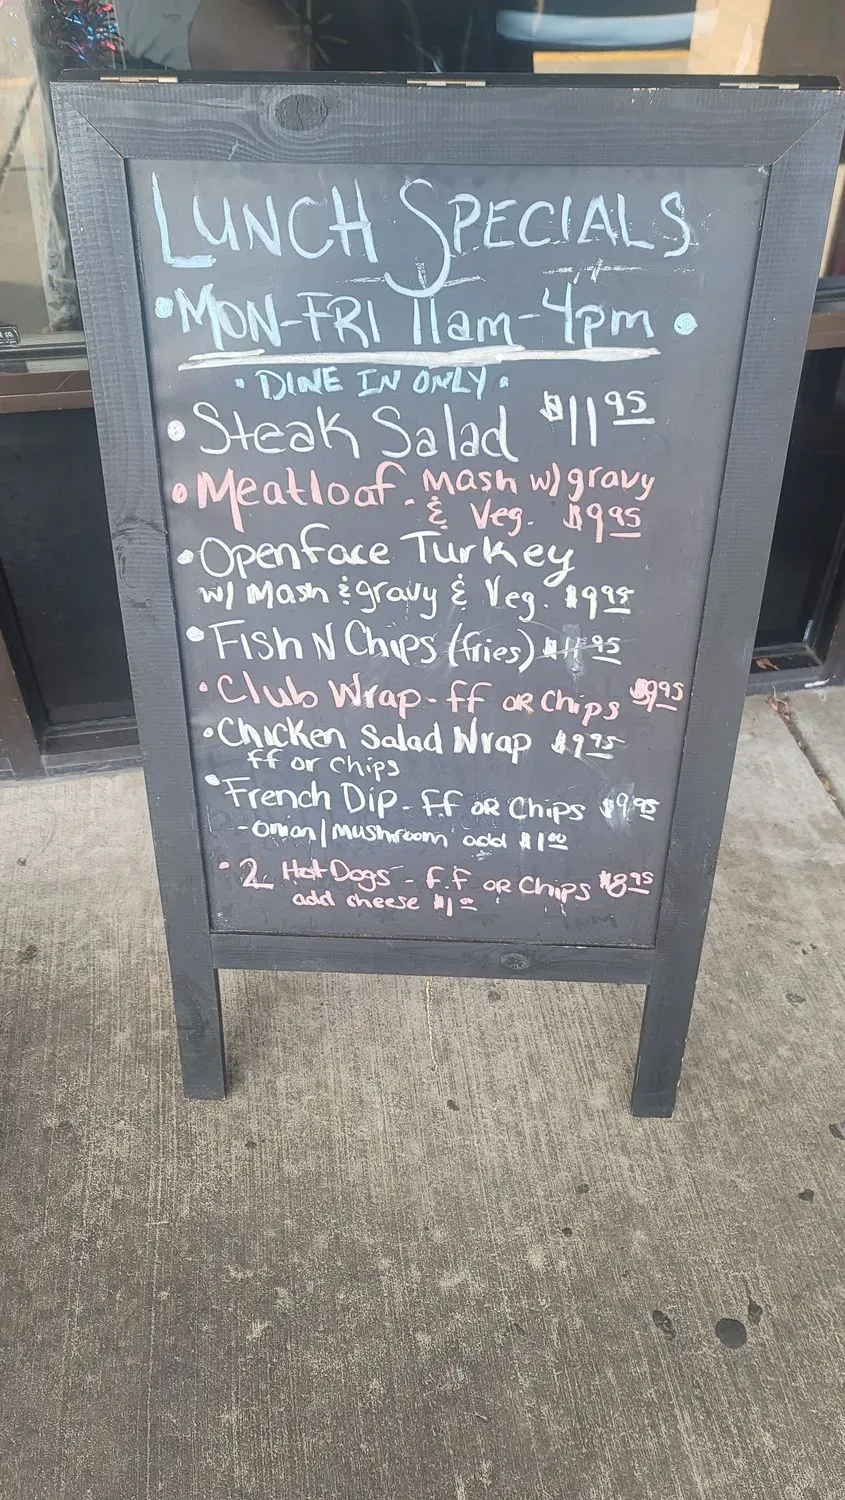 LUNCH SPECIALS
• MON-FRI 11am-4pm •
• DINE IN ONLY •
• Steak Salad $11 95
• Meatloaf - Mash w/ gravy
& Veg. $9 95
• Openface Turkey
w/ Mash & gravy & Veg. $9 95
• Fish N Chips (fries) $11 95
• Club Wrap - ff OR Chips $9 95
• Chicken Salad Wrap $9 95
ff or chips
• French Dip - F.F OR Chips $9 95
- Onion/Mushroom add $1 00
• 2 Hot Dogs - F.F OR Chips $8 95
add cheese $1 00